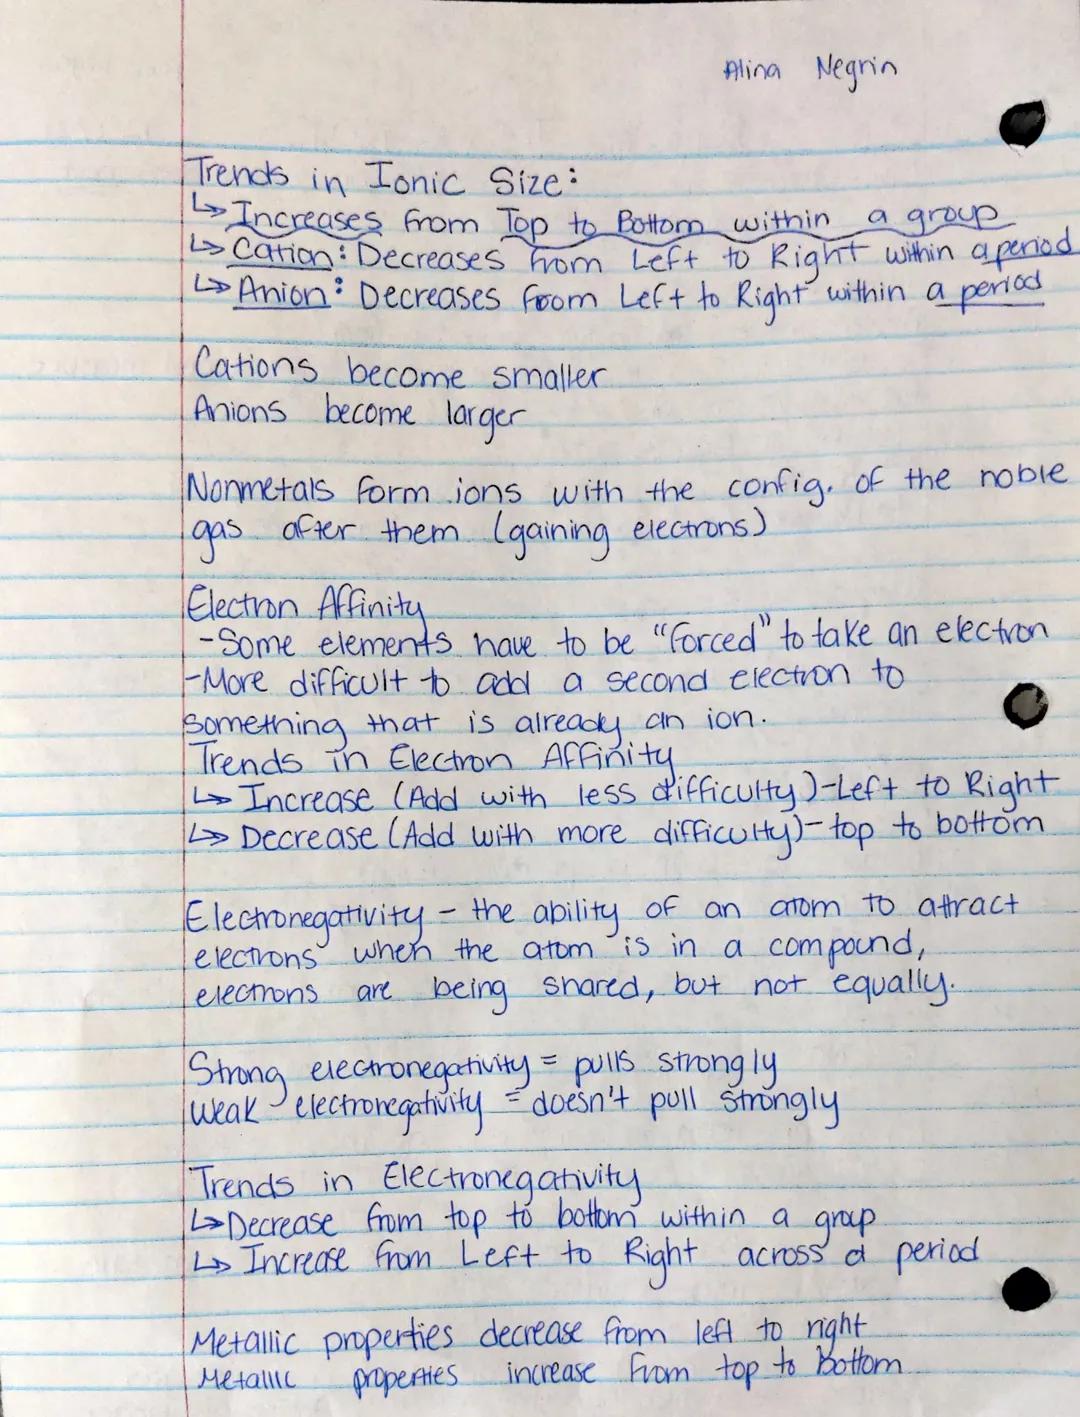 Alina Negrin
Trends in Ionic Size:
↳ Increases from Top to Bottom within a group
↳ Cation: Decreases from Left to Right within a period
↳ Anion: Decreases from Left to Right within a period
Cations become smaller
Anions become larger
Nonmetals form ions with the config. of the noble
gas after them (gaining electrons)
Electron Affinity
-Some elements have to be "forced" to take an electron
-More difficult to add a second electron to
something that is already an ion.
Trends in Electron Affinity
↳ Increase (Add with less difficulty)-Left to Right
↳ Decrease (Add with more difficulty)-top to bottom
Electronegativity - the ability of an atom to attract
electrons when the atom is in a compound,
electrons are being shared, but not equally.
Strong electronegativity = pulls strongly
Weak electronegativity = doesn't pull strongly
Trends in Electronegativity
↳ Decrease from top to bottom within a group
↳ Increase from Left to Right across a period
Metallic properties decrease from left to right
Metallic properties increase from top to bottom